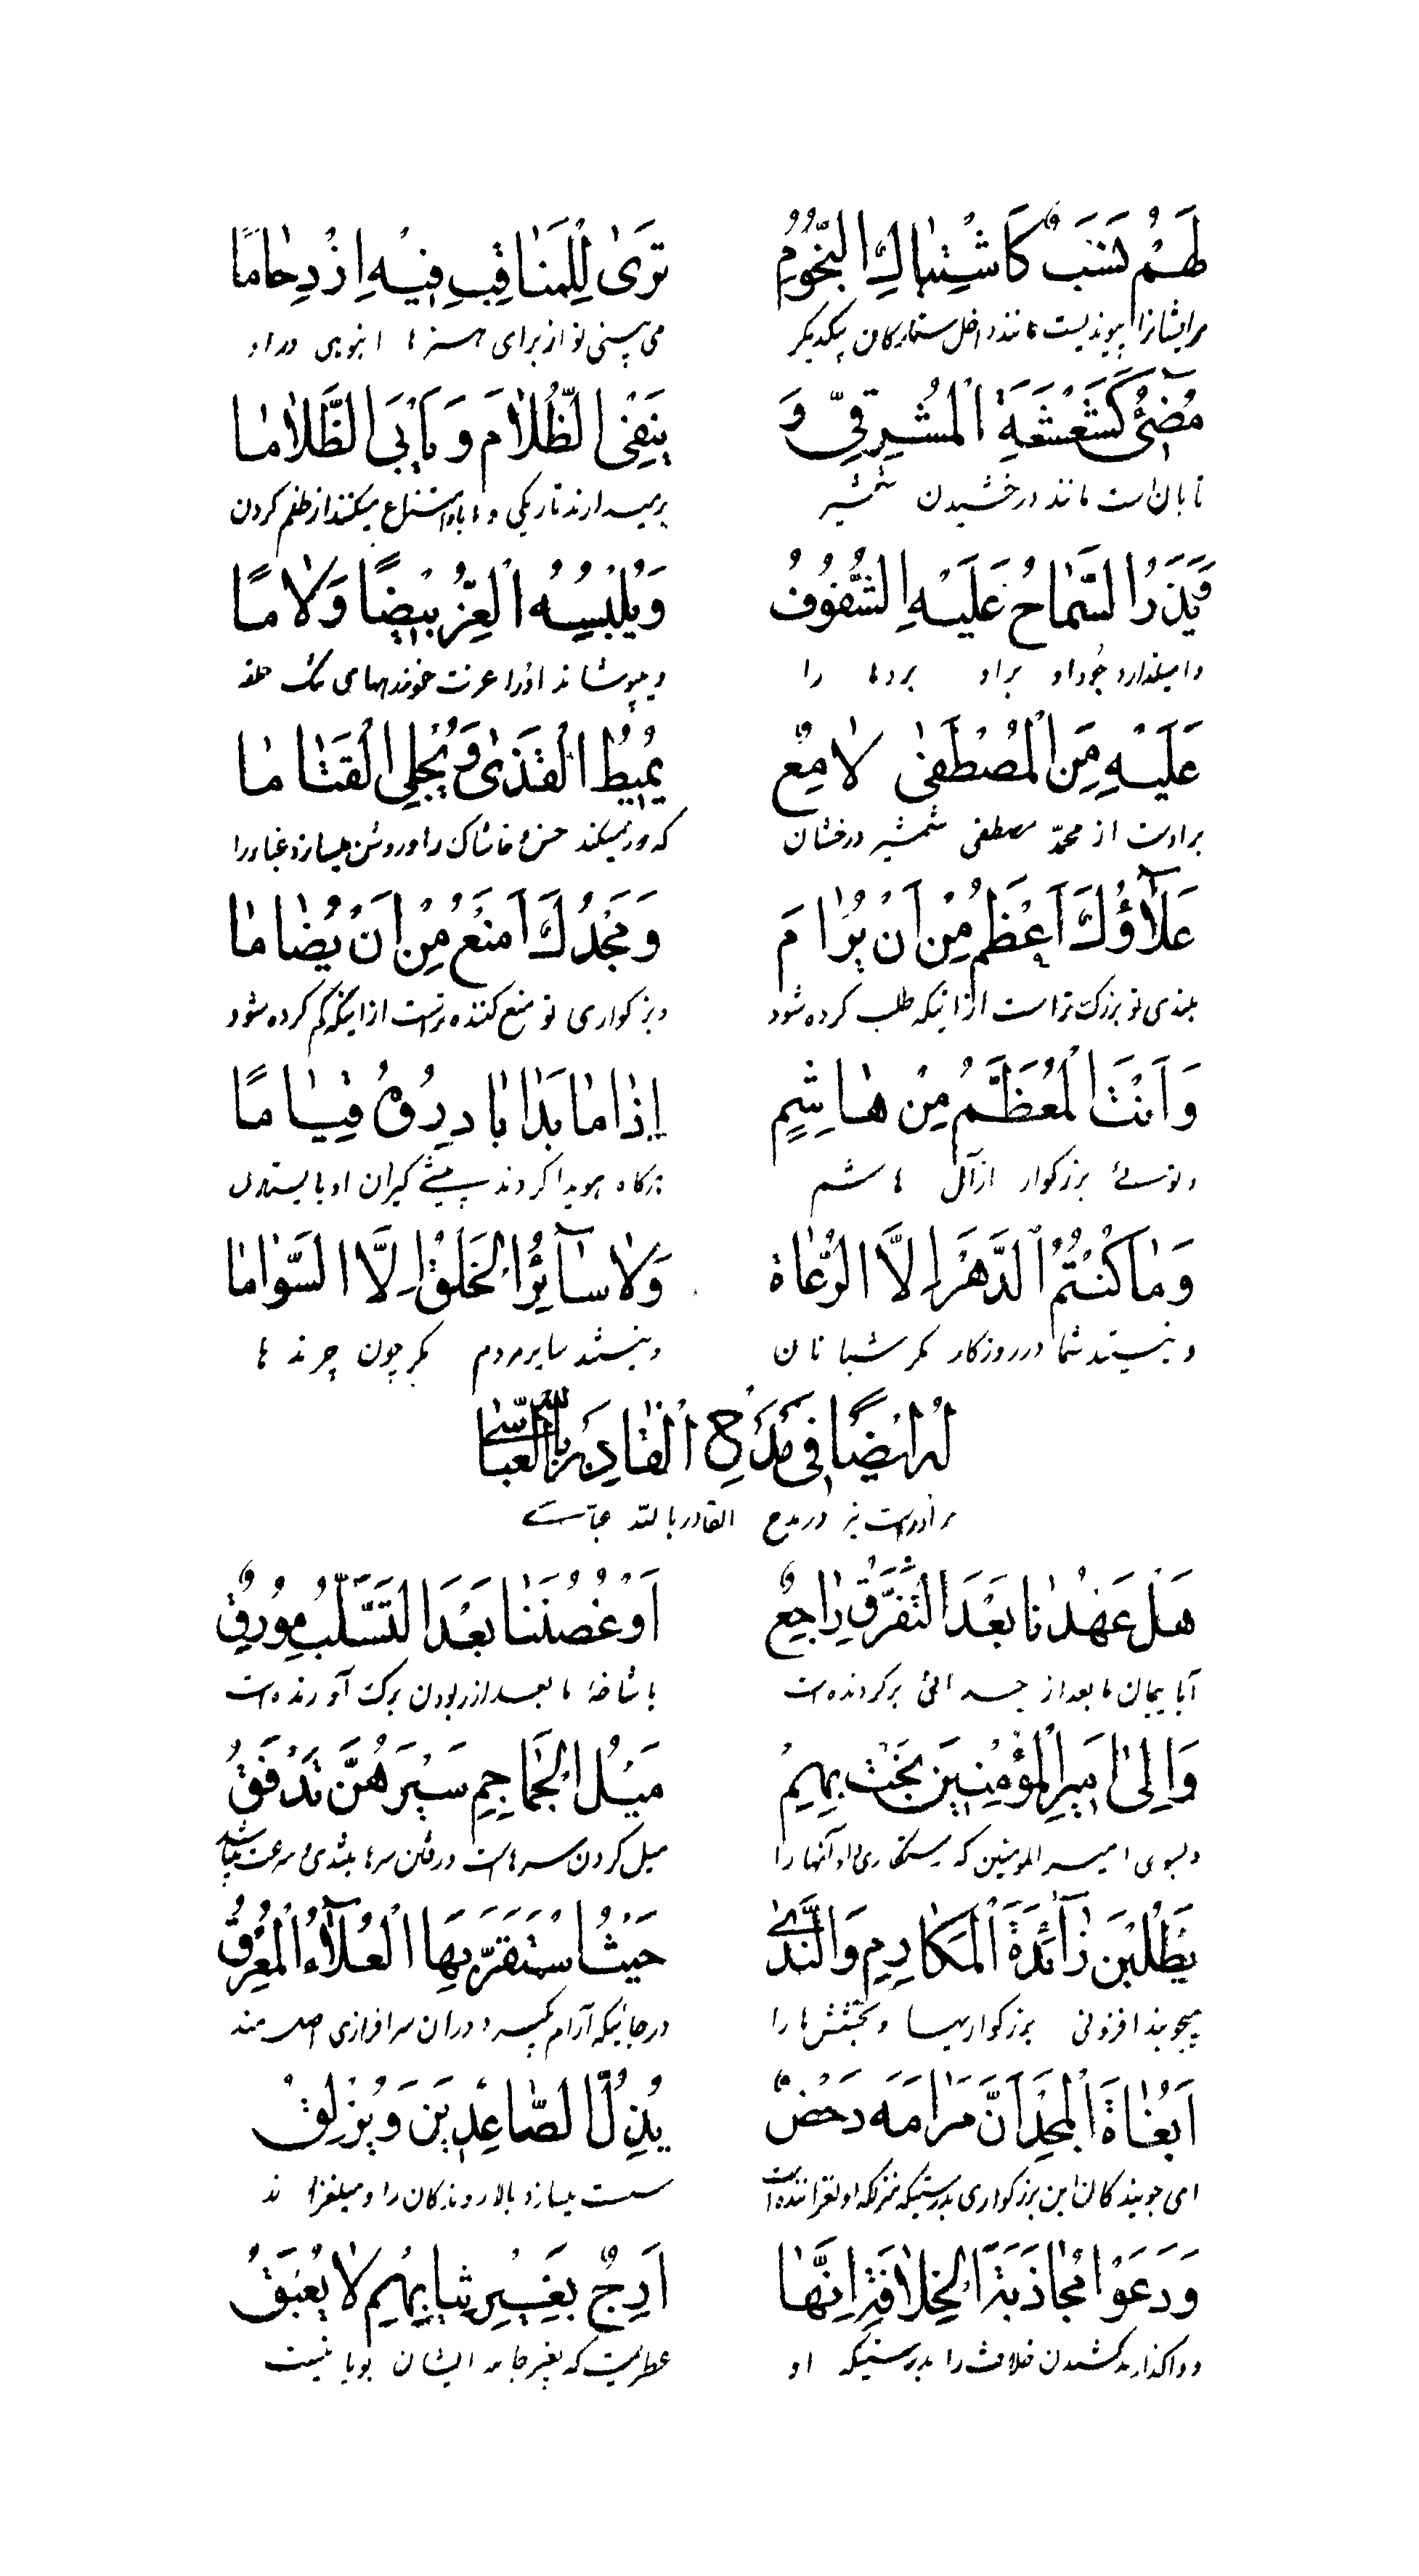 لَهُمْ نَسَبٌ كَاشْتِبٰاكِ النُّجُومِ تَرىٰ لِلْمَنٰاقِبِ فِيْهِ اِزْدِحٰامًا
مرایشانرا پیوندیست مانند داخل ستارکان یکدیکر می بینی تو از برای هنرها انبوهی در او
مُضِٓئٌ كَشَعْشَعَةِ الْمُشْرِقِیِّ وَ یَنْفِی الظُّلٰامَ وَ یَأْبَی الظَّلٰامٰا
تابان است مانند درخشیدن شمشیر برمیدارند تاریکی و امتناع میکنند از ظلم کردن
وَیَذَرُ السَّمٰاحُ عَلَیْهِ الشُّفُوفُ وَیُلْبِسُهُ الْعِزُّ بِیْضًا وَلٰامًا
وامیکذارد جود او بر او بردها را و میپوشاند او را عزت خودهای حلقه
عَلَیْهِ مِنَ الْمُصْطَفیٰ لٰامِعٌ یُمِیْطُ الْقَذیٰ وَ یُجْلِی الْقَتٰامٰا
بر اوست از محمّد مصطفی شمشیر درخشان که دور میکند خس و خاشاک را و روشن میسازد غبار را
عَلٰآؤُكَ اَعْظَمُ مِنْ اَنْ یُرٰامَ وَمَجْدُكَ اَمْنَعُ مِنْ اَنْ یُضٰامٰا
بلندی تو بزرک تر است از اینکه طلب کرده شود و بزرکواری تو منع کننده تر است از اینکه کم کرده شود
وَ اَنْتَ الْمُعَظَّمُ مِنْ هٰاشِمٍ اِذٰا مٰا بَدٰا بٰادِرُوْهُ قِیٰامًا
و توئی بزرکوار از آل هاشم هرکاه هویدا کردند پیشی کیران او با یستادن
وَ مٰا كُنْتُمُ الدَّهْرَ اِلَّا الرُّعٰاةَ وَلٰا سٰآئِرُ الْخَلْقِ اِلَّا السَّوٰامٰا
و نیستید شما در روزکار مکر شبانان و نیستند سایر مردم مکر چون چرند ها
لَهُ اَیْضًا فِی مَدْحِ الْقٰادِرِ بِاللّٰهِ الْعَبّٰاسِی
مر او راست نیز در مدح القادر بالله عباسی
هَلْ عَهْدُنٰا بَعْدَ التَّفَرُّقِ رٰاجِعٌ اَوْ غُصْنُنٰا بَعْدَ التَّسَلُّبِ مُوْرِقٌ
آیا پیمان ما بعد از جدائی برکردنده است یا شاخهٔ ما بعد از ربودن برک آورنده است
وَ اِلیٰ اَمِیرِ الْمُؤْمِنِیْنَ نَجَتْ بِهِمْ مَیْلُ الْجَمٰاجِمِ سَیْرَهُنَّ تَدَفَّقُ
و بسوی امیر المومنین که رستکاری داد آنها را میل کردن سرهاست در رفتن سرها بلندی و سرعت میباشد
یَطْلُبْنَ زٰائِدَةَ الْمَكٰارِمِ وَالنَّدیٰ حَیْثُ اسْتَقَرَّ بِهَا الْعُلٰآءُ الْمُعْرِقُ
میجویند افزونی بزرکواریها و بخششها را در جائیکه آرام کیرد در آن سرافرازی اصلمند
اَبُغٰاةَ الْمَجْدِ اَنَّ مَرٰامَهُ دَحْضٌ یُذِلُّ الصّٰاعِدِیْنَ وَ یُزْلِقُ
ای جویندکان این بزرکواری بدرستیکه منزلکه او لغزاننده است سست میسازد بالا روندکان را و میلغزاند
وَ دَعَوْا مُجٰاذَبَةَ الْخِلٰافَةِ اِنَّهٰا اَرِجٌ بِغَیْرِ ثِیٰابِهِمْ لٰا یُعْبَقُ
و واکذارید کشیدن خلافت را بدرستیکه او عطریست که بغیر جامه ایشان بویا نیست